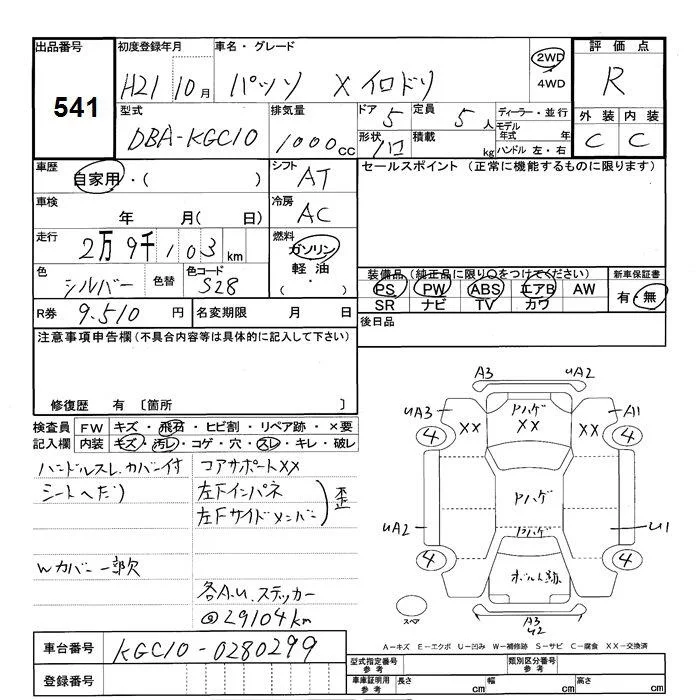 出品番号 初度登録年月 車名・グレード 評価点
541
H21 10月 パッソ X イロドリ 2WD 4WD R
型式 排気量 ドア 定員 ディーラー・並行 外装 内装
DBA-KGC10 1000cc 5 5人 モデル年式 年 C C
形状 積載 kg ハンドル 左・右
車歴 シフト セールスポイント (正常に機能するものに限ります)
自家用・( ) AT
車検 冷房
年 月( 日) AC
走行 燃料
2万9千103km ガソリン
軽油
( ・ )
色 色替 色コード 装備品 (純正品に限り○をつけてください) 新車保証書
シルバー S28 PS PW ABS エアB AW 有・無
SR ナビ TV カワ
R券 9.510円 名変期限 月 日 後日品
注意事項申告欄(不具合内容等は具体的に記入して下さい)
修復歴 有 〔箇所 〕
検査員 FW キズ・飛石・ヒビ割・リペア跡・×要
記入欄 内装 キズ・汚レ・コゲ・穴・スレ・キレ・破レ
ハンドルスレ.カバー付 コアサポートXX
シートヘたり 左Fインパネ
左Fサイドメンバー 歪
Wカバー一部欠
各A.U.ステッカー
@29104km
A3 uA2
uA3 XX Pハゲ XX XX A1
4 4
Pハゲ
uA2 u1
Pハゲ
4 ボルト跡 4
スペア A3
u2
A-キズ E-エクボ U-凹み W-補修跡 S-サビ C-腐食 XX-交換済
車台番号 KGC10-0280299
登録番号
型式指定番号 参考 類別区分番号 参考
車庫証明用 参考 長さ cm 幅 cm 高さ cm